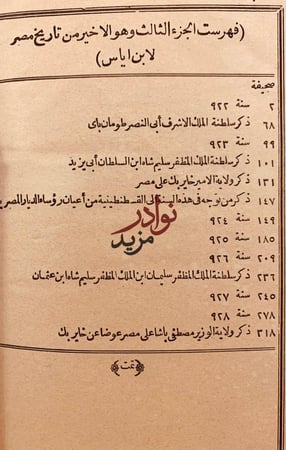 (فهرست الجزء الثالث وهو الاخير من تاريخ مصر
لابن اياس)
صحيفة
٢ سنة ٩٢٢
٦٨ ذكر سلطنة الملك الاشرف أبى النصر طومان باى
٩٩ سنة ٩٢٣
١٠١ ذكر سلطنة الملك المظفر سليم شاه ابن السلطان أبى يزيد
١٣١ ذكر ولاية الامير خاير بك على مصر
١٤٧ ذكر من توجه فى هذه السنة الى القسطنطينية من أعيان رؤساء الديار المصرية
١٤٩ سنة ٩٢٤
١٨٥ سنة ٩٢٥
٢٠٩ سنة ٩٢٦
٢٣٦ ذكر سلطنة الملك المظفر سليمان ابن الملك المظفر سليم شاه ابن عثمان
٢٤٥ سنة ٩٢٧
٢٧٨ سنة ٩٢٨
٣١٨ ذكر ولاية الوزير مصطفى باشا على مصر عوضا عن خاير بك
(تمت)
نوادر
مزيد